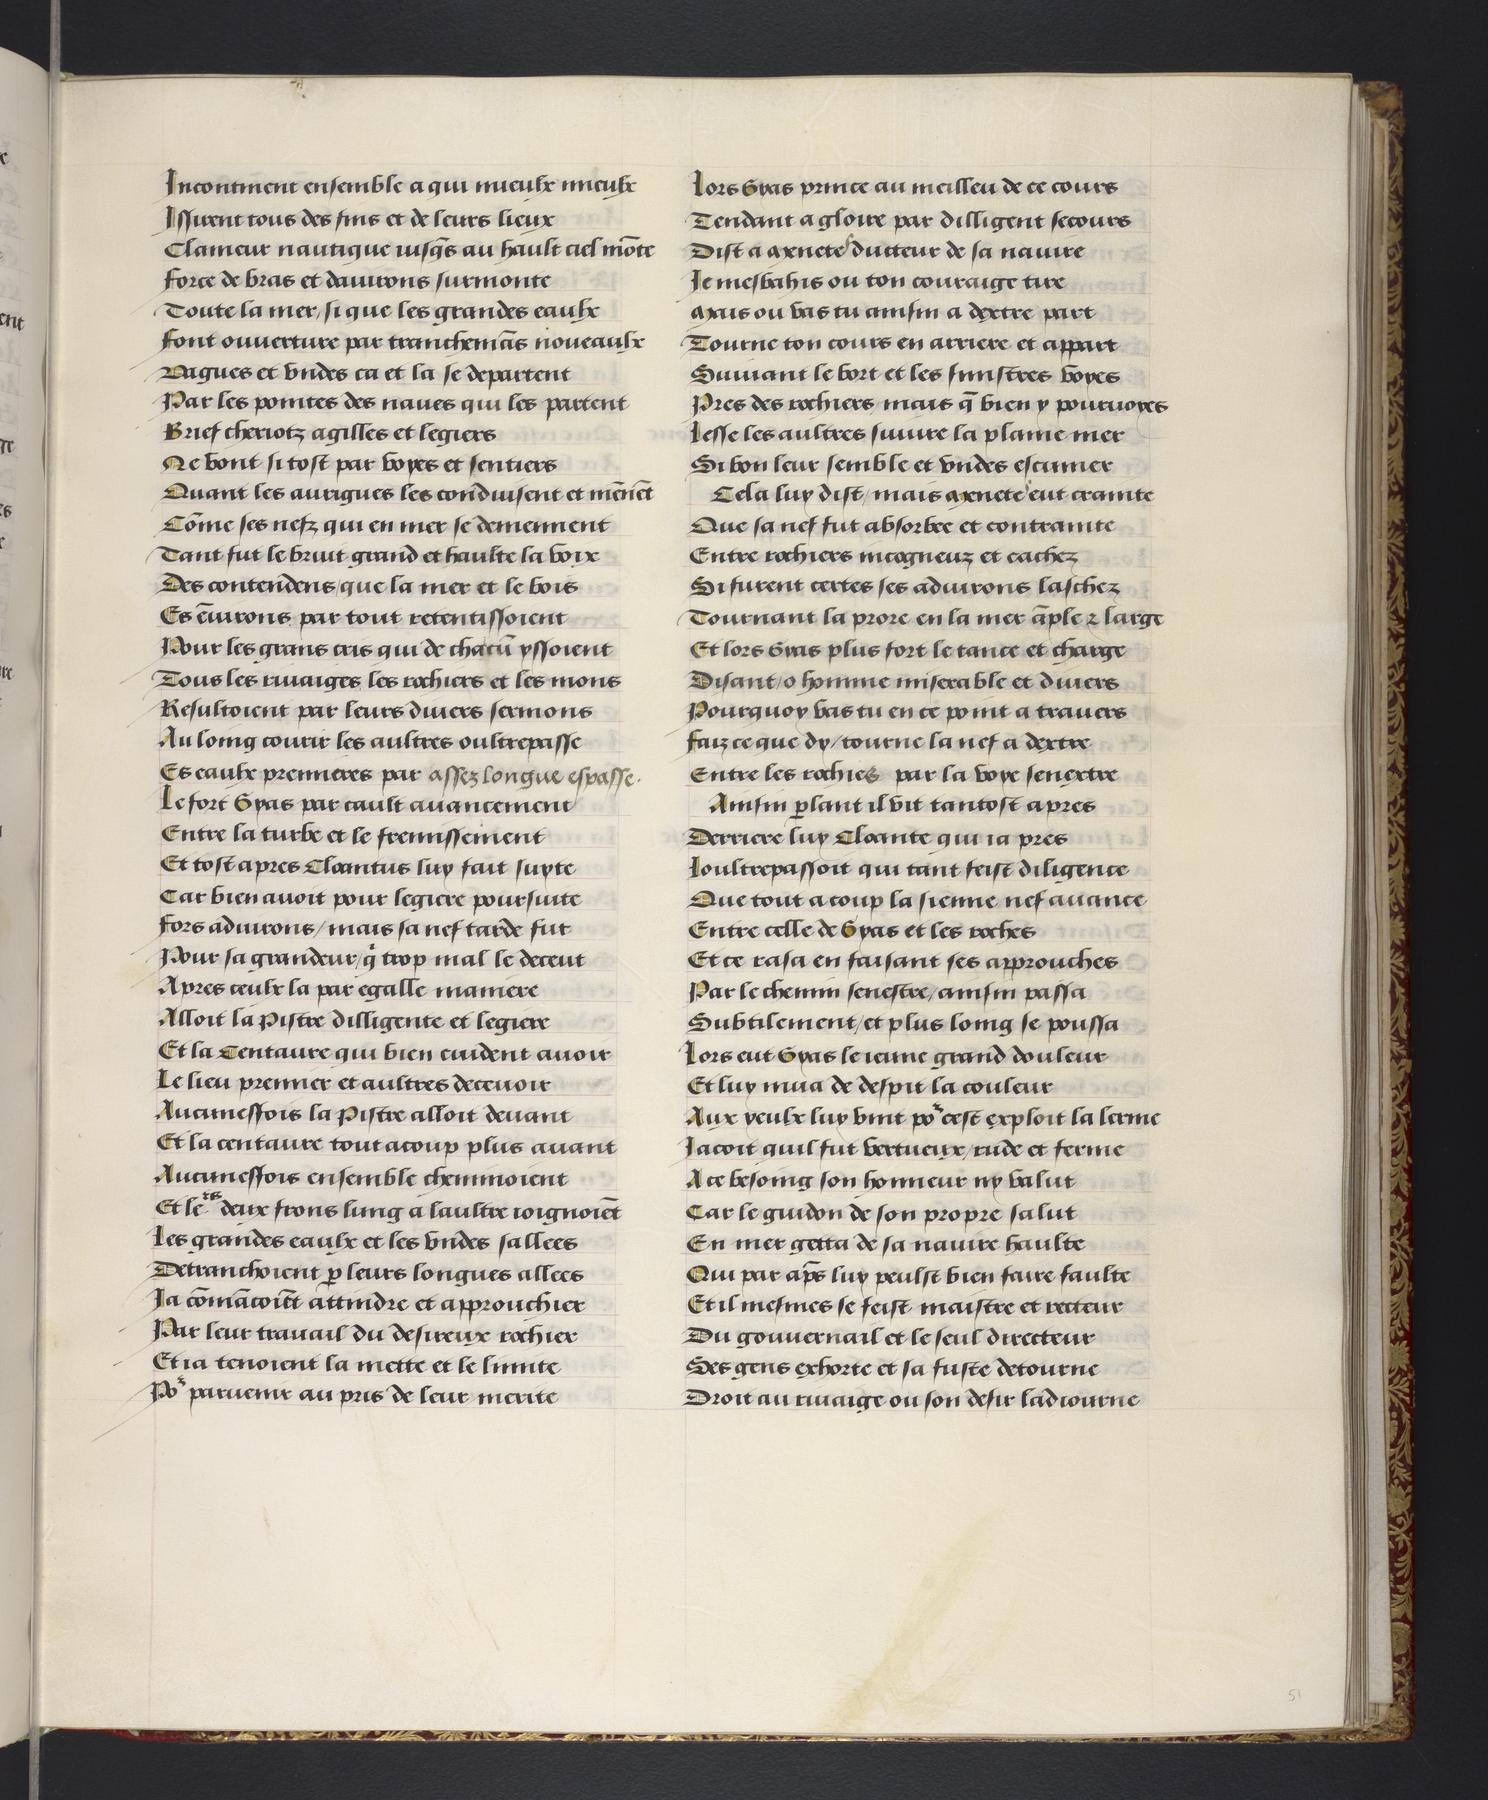 Incontinent ensemble a qui mieulx mieulx
Issirent tous des fins et de leurs lieux
Clameur nautique iusq̃s au hault ciel mõte
Force de bras et dauirons surmonte
Toute la mer/ si que les grandes eaulx
Font ouuerture par tranchemẽs nouueaulx
Vagues et vndes ca et la se departent
Par les pointes des naues qui les partent
Brief cheriotz agilles et legiers
Ne vont si tost par voyes et sentiers
Quant les aurigues les conduisent et mẽnẽt
Cõme ses nefz qui en mer se demennent
Tant fut le bruit grand et haulte la voix
Des contendens/ que la mer et le bois
Es ẽuirons par tout retentissoient
Pour les grans cris qui de chacũ yssoient
Tous les riuaiges les rochiers et les mons
Resultoient par leurs diuers sermons
Au loing courir les aultres oultrepasse
Es eaulx premieres par assez longue espasse.
Le fort Gyas par cault auancement
Entre la turbe et le fremissement
Et tost apres Cloantus luy fait suyte
Car bien auoit pour legiere poursuite
Fors aduirons/ mais sa nef tarde fut
Pour sa grandeur/ q̃ trop mal le deceut
Apres ceulx la par egalle maniere
Alloit la Pistre dilligente et legiere
Et la Centaure qui bien cuident auoir
Le lieu premier et aultres deceuoir
Aucuneffois la Pistre alloit deuant
Et la centaure tout acoup plus auant
Aucuneffois ensemble cheminoient
Et le rs deux frons lung a laultre ioignoiẽt
Les grandes eaulx et les vndes sallees
Detranchoient p leurs longues allees
Ja cõmãcoiẽt attindre et approuchier
Par leur trauail du desireux rochier
Et ia tenoient la mette et le limite
Po r paruenir au pris de leur merite
Lors Gyas prince au meilleu de ce cours
Tendant a gloire par dilligent secours
Dist a Menete ducteur de sa nauire
Je mesbahis ou ton couraige tire
Mais ou vas tu ainsin a dextre part
Tourne ton cours en arriere et appart
Suiuant le bort et les sinistres voyes
Pres des rochiers mais q̃ bien y pouruoyes
Lesse les aultres suiure la plaine mer
Si bon leur semble et vndes escumer
Cela luy dist/ mais Menete eut crainte
Que sa nef fut absorbee et contrainte
Entre rochiers incogneuz et cachez
Si furent certes ses aduirons laschez
Tournant la prore en la mer ãple ⁊ large
Et lors Gyas plus fort le tance et charge
Disant/ o homme miserable et diuers
Pourquoy vas tu en ce point a trauers
Faiz ce que dy/ tourne la nef a dextre
Entre les rochies par la voye senextre
Ainsin p̃lant il vit tantost apres
Derriere luy Cloante qui ia pres
Loultrepassoit qui tant feist diligence
Que tout a coup la sienne nef auance
Entre celle de Gyas et les roches
Et ce rasa en faisant ses approuches
Par le chemin senestre/ ainsin passa
Subtilement/ et plus loing se poussa
Lors eut Gyas le ieune grand douleur
Et luy mua de despit la couleur
Aux yeulx luy vint po r cest exploit la lerme
Jacoit quil fut vertueux/ rude et ferme
A ce besoing son honneur ny valut
Car le guidon de son propre salut
En mer getta de sa nauire haulte
Qui par ap̃s luy peulst bien faire faulte
Et il mesmes se feist maistre et recteur
Du gouuernail et le seul directeur
Ses gens exhorte et sa fuste detourne
Droit au riuaige ou son desir ladiourne
51